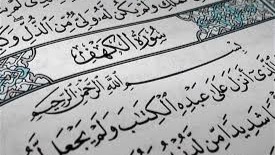 وَلَمْ يَكُن لَّهُۥ وَلِىٌّ مِّنَ ٱلذُّلِّ
سُورَةُ الكَهْفِ
بِسْمِ ٱللَّهِ ٱلرَّحْمَٰنِ ٱلرَّحِيمِ
أَنزَلَ عَلَىٰ عَبْدِهِ ٱلْكِتَٰبَ وَلَمْ يَجْعَل
شَدِيدًا مِّن لَّدُنْهُ